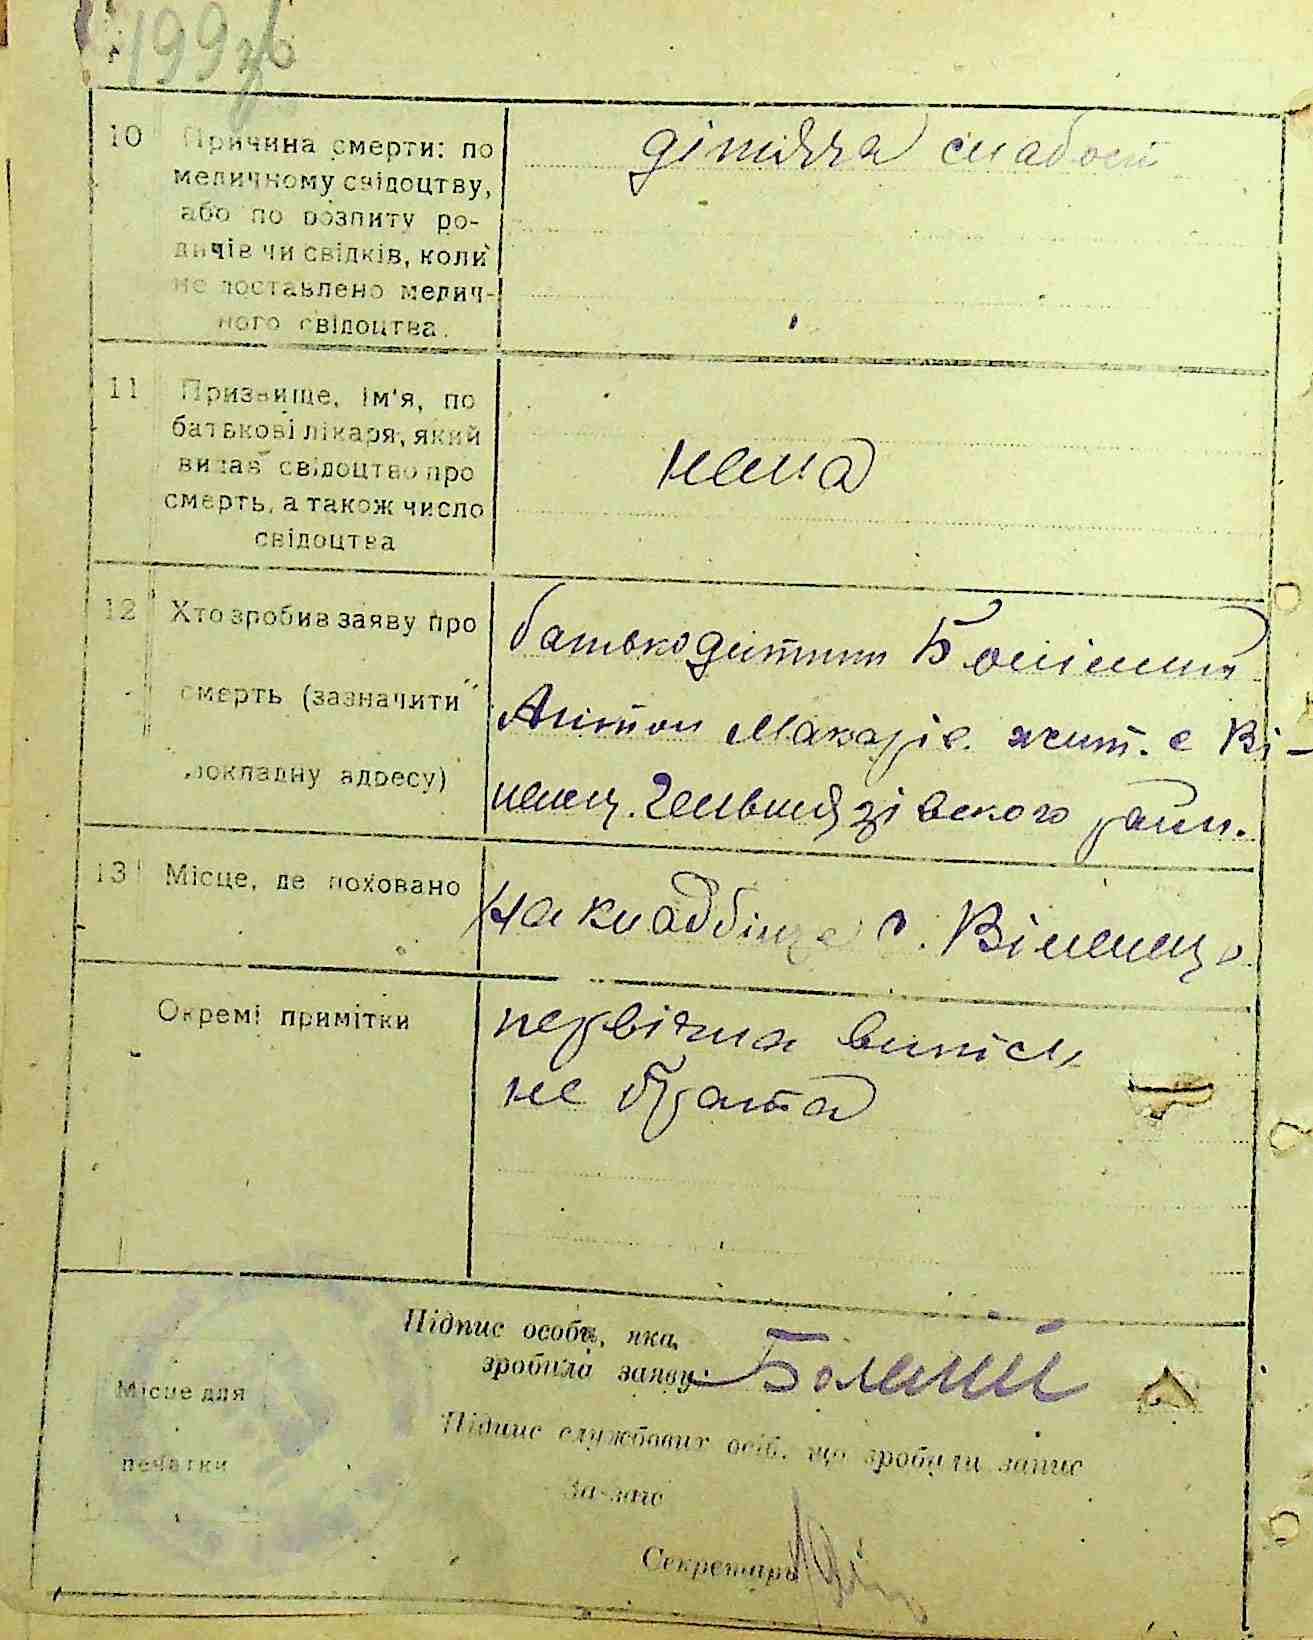 199 зв
10 Причина смерти: по
меличному свідоцтву,
або по розпиту ро-
дичів чи свідків, коли
не поставлено мелич-
ного свідоцтва.
дітяча слабост
11 Призвище, ім'я, по
батькові лікаря, який
видав свідоцтво про
смерть, а також число
свідоцтва
нема
12 Хто зробив заяву про
смерть (зазначити
докладну адресу)
батько дитини
Антон Макарів. жит. с Ві-
ненец. Гельмязівского райн.
13 Місце, де поховано
на кладбіще с. Віненец.
Окремі примітки
первічна випісь
не брата
Підпис особи, яка
зробила заяву:
Місце для
печатки
Підпис службових осіб, що зробили запис
За-загс
Секретарь